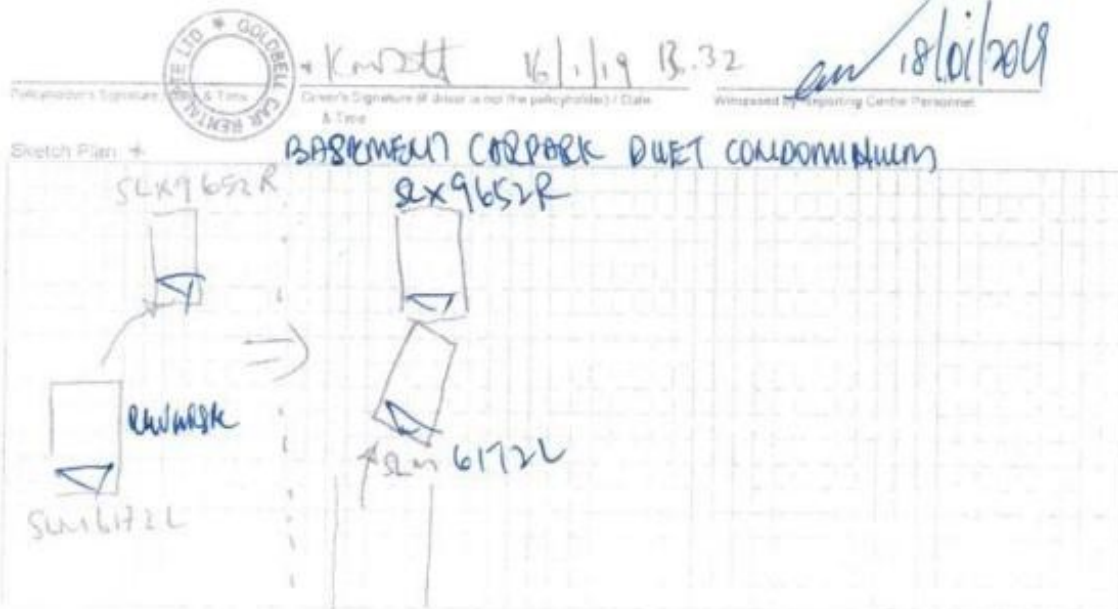 GOLDBELL CAR RENTAL PTE LTD
16/1/19 13.32
18/01/2019
Policyholder's Signature / Date & Time
Driver's Signature (if driver is not the policyholder) / Date
& Time
Witnessed by Reporting Centre Personnel
Sketch Plan
BASEMENT CARPARK DUET CONDOMINIUM
SLX9652R
SLX9652R
REVERSE
6172L
SLM6172L